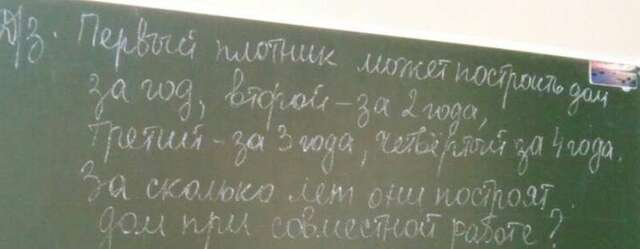 Д/З. Первый плотник может построить дом
за год, второй - за 2 года,
третий - за 3 года, четвёртый за 4 года.
За сколько лет они построят
дом при совместной работе?